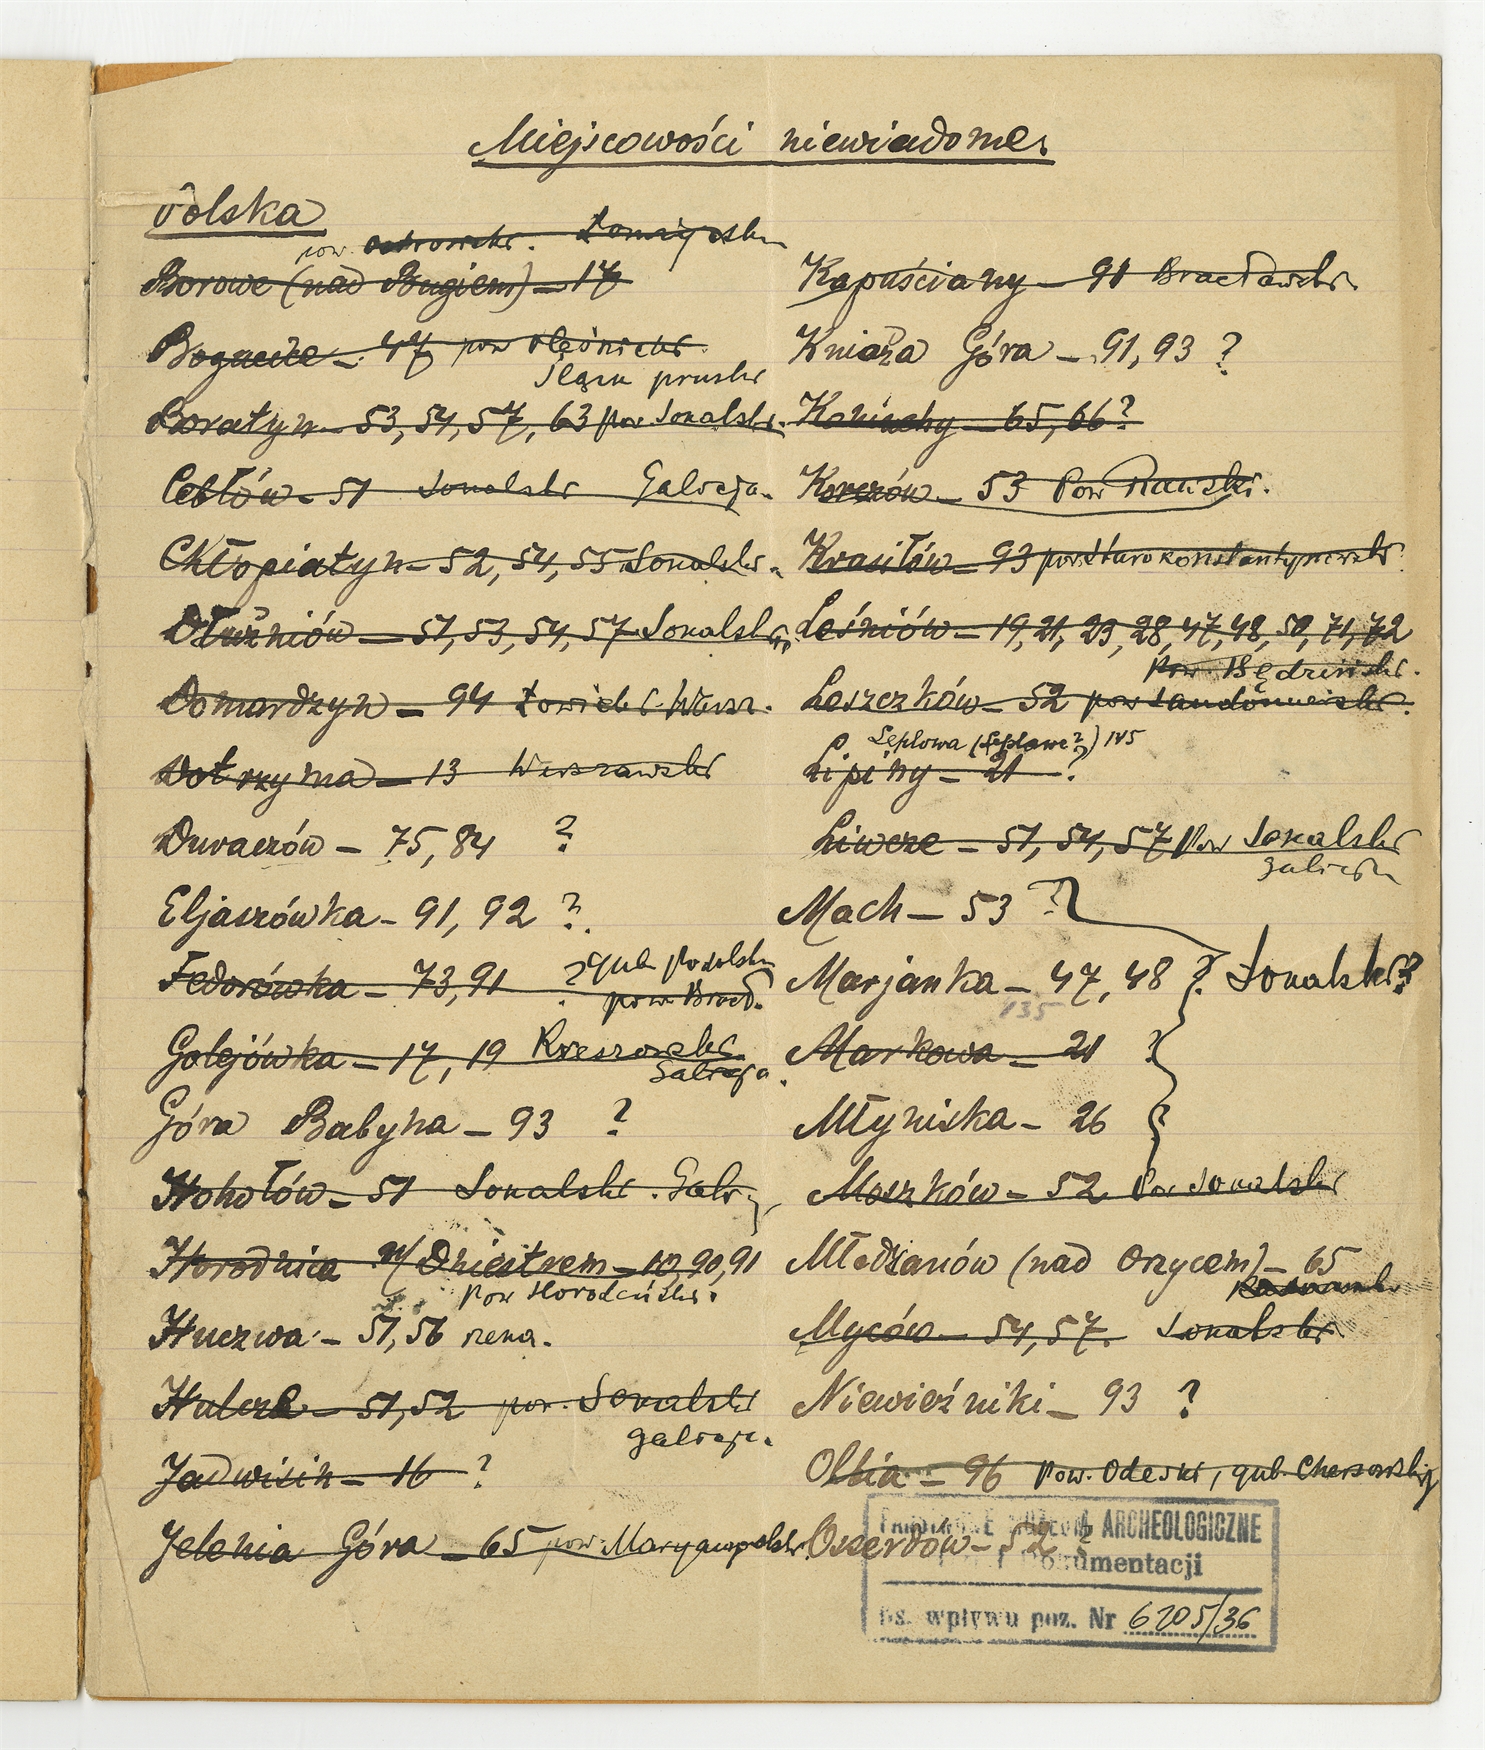 Miejscowości niewiadome.
Polska
pow. Ostrowski. Łomżyńska
Borowe (nad Bugiem) – 17
47 pow Oleśnicki.
Śląsk pruski
Boratyn – 53, 54, 57, 63 pow Sokalski.
Cebłów – 51 Sokalski Galicja.
Chłopiatyn – 52, 54, 55 Sokalski.
Dłużniów – 51, 53, 54, 57 Sokalski
Domardzyn – 94 Łowicki Warsz.
Dotrzyma – 13 Warszawski
Duraczów – 75, 84 ?
Eljaszówka – 91, 92 ?
Fedorówka – 73, 91 ? gub Podolska
pow. Bracł.
Golejówka – 17, 19 Rzeszowski
Galicja.
Góra Babyna – 93 ?
Hohołów – 51 Sokalski. Galicj
Horodnica n/ Dniestrem – 10, 90, 91
pow Horodeński.
Huczwa – 51, 56 rzeka.
Hulcze – 51, 52 pow. Sokalski
galicja.
Jadwisin – 16 ?
Jelenia Góra – 65 pow. Maryampolski.
Kapuściany – 91 Bracławski.
Kniaża Góra – 91, 93 ?
65, 66?
Korczów – 53 Pow Rawski.
Krasiłów – 93 pow. Starokonstantynowski
Leśniów – 19, 21, 23, 28, 47, 48, 50, 71, 72
pow. Będziński.
Leszczków – 52 pow Sandomierski.
Lepłowa (Lepławe?) 145
Lipiny – 21 ?
Liwcze – 51, 54, 57 Pow Sokalski
galicja
Mach – 53 ?
Marjanka – 47, 48 ? Sokalski?
135
Markowa – 21 ?
Młyniska – 26 ?
Moszków – 52 Pow Sokalski
Młodzianów (nad Orzycem) – 65
Myców – 54, 57. Sokalski.
Niewieźniki – 93 ?
Olbia – 96 Pow. Odeski, gub. Chersońskiej
Oszerdów – 52 ?
PAŃSTWOWE MUZEUM ARCHEOLOGICZNE
Dokumentacji
Ks. wpływu poz. Nr 6205/36